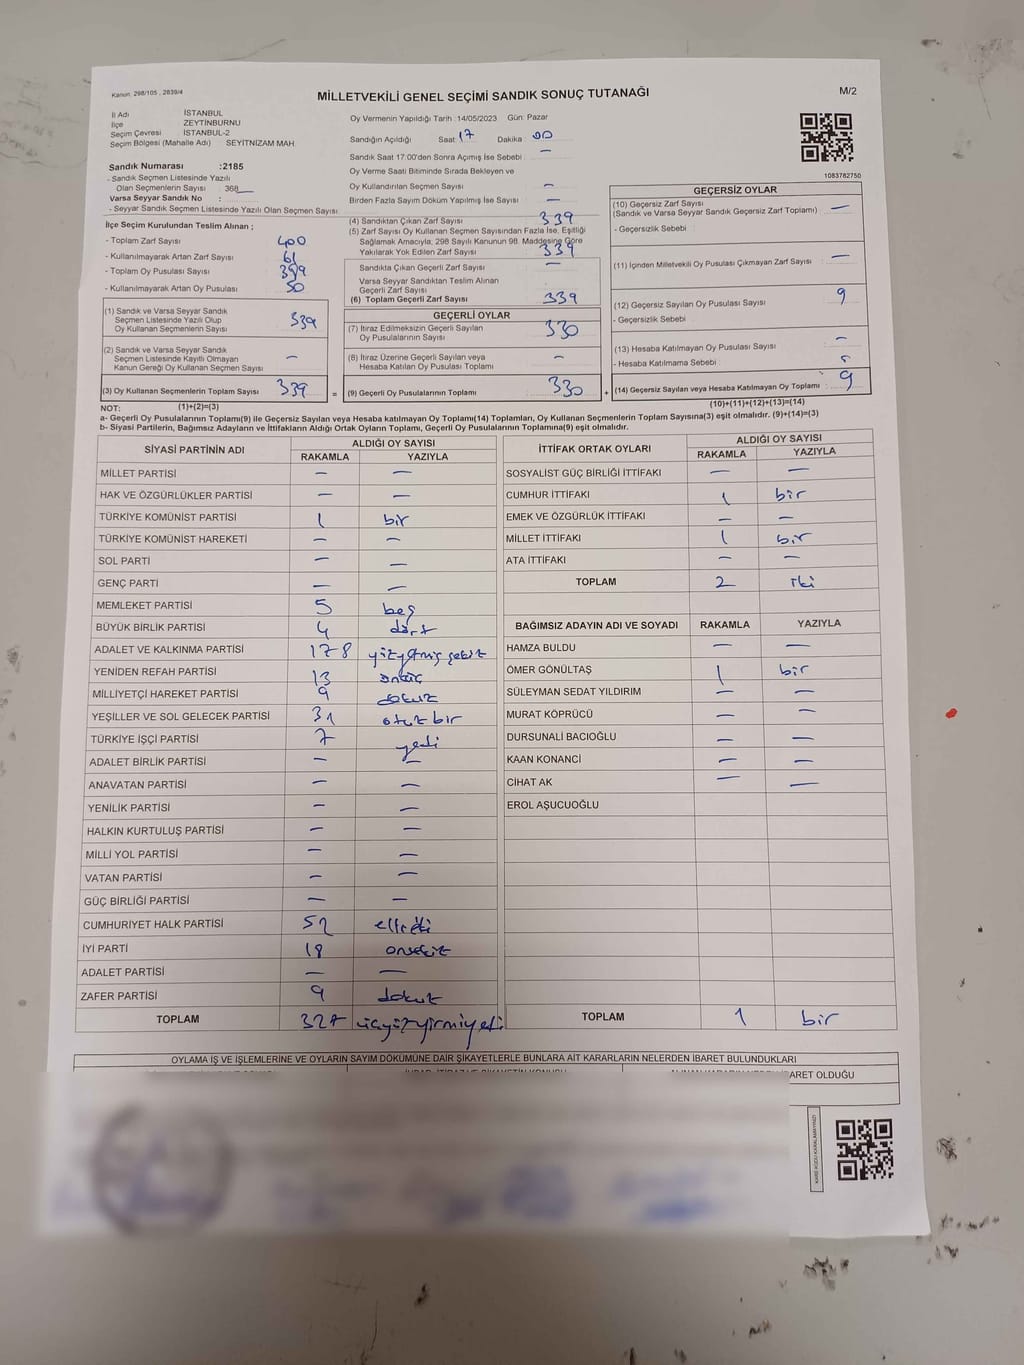 Kanun: 298/105 , 2839/4
MİLLETVEKİLİ GENEL SEÇİMİ SANDIK SONUÇ TUTANAĞI
M/2
İl Adı İSTANBUL
İlçe ZEYTİNBURNU
Seçim Çevresi İSTANBUL-2
Seçim Bölgesi (Mahalle Adı) SEYİTNİZAM MAH.
Sandık Numarası :2185
- Sandık Seçmen Listesinde Yazılı
Olan Seçmenlerin Sayısı : 368
Varsa Seyyar Sandık No :
- Seyyar Sandık Seçmen Listesinde Yazılı Olan Seçmen Sayısı
Oy Vermenin Yapıldığı Tarih :14/05/2023 Gün: Pazar
Sandığın Açıldığı Saat: 17 Dakika : 00
Sandık Saat 17:00'den Sonra Açımış İse Sebebi : —
Oy Verme Saati Bitiminde Sırada Bekleyen ve
Oy Kullandırılan Seçmen Sayısı —
Birden Fazla Sayım Döküm Yapılmış İse Sayısı —
1083782750
İlçe Seçim Kurulundan Teslim Alınan ;
- Toplam Zarf Sayısı 400
- Kullanılmayarak Artan Zarf Sayısı 61
- Toplam Oy Pusulası Sayısı
- Kullanılmayarak Artan Oy Pusulası 50
(1) Sandık ve Varsa Seyyar Sandık
Seçmen Listesinde Yazılı Olup
Oy Kullanan Seçmenlerin Sayısı 339
(2) Sandık ve Varsa Seyyar Sandık
Seçmen Listesinde Kayıtlı Olmayan
Kanun Gereği Oy Kullanan Seçmen Sayısı —
(3) Oy Kullanan Seçmenlerin Toplam Sayısı 339 =
(1)+(2)=(3)
(4) Sandıktan Çıkan Zarf Sayısı 339
(5) Zarf Sayısı Oy Kullanan Seçmen Sayısından Fazla İse, Eşitliği
Sağlamak Amacıyla; 298 Sayılı Kanunun 98. Maddesine Göre
Yakılarak Yok Edilen Zarf Sayısı
339
Sandıkta Çıkan Geçerli Zarf Sayısı —
Varsa Seyyar Sandıktan Teslim Alınan
Geçerli Zarf Sayısı
(6) Toplam Geçerli Zarf Sayısı 339
GEÇERLİ OYLAR
(7) İtiraz Edilmeksizin Geçerli Sayılan
Oy Pusulalarının Sayısı 330
(8) İtiraz Üzerine Geçerli Sayılan veya
Hesaba Katılan Oy Pusulası Toplamı —
(9) Geçerli Oy Pusulalarının Toplamı 330 +
GEÇERSİZ OYLAR
(10) Geçersiz Zarf Sayısı
(Sandık ve Varsa Seyyar Sandık Geçersiz Zarf Toplamı) —
- Geçersizlik Sebebi :
(11) İçinden Milletvekili Oy Pusulası Çıkmayan Zarf Sayısı —
(12) Geçersiz Sayılan Oy Pusulası Sayısı 9
- Geçersizlik Sebebi :
(13) Hesaba Katılmayan Oy Pusulası Sayısı —
- Hesaba Katılmama Sebebi :
(14) Geçersiz Sayılan veya Hesaba Katılmayan Oy Toplamı : 9
(10)+(11)+(12)+(13)=(14)
NOT:
a- Geçerli Oy Pusulalarının Toplamı(9) ile Geçersiz Sayılan veya Hesaba katılmayan Oy Toplamı(14) Toplamları, Oy Kullanan Seçmenlerin Toplam Sayısına(3) eşit olmalıdır. (9)+(14)=(3)
b- Siyasi Partilerin, Bağımsız Adayların ve İttifakların Aldığı Ortak Oyların Toplamı, Geçerli Oy Pusulalarının Toplamına(9) eşit olmalıdır.
SİYASİ PARTİNİN ADI
ALDIĞI OY SAYISI
RAKAMLA YAZIYLA
MİLLET PARTİSİ — —
HAK VE ÖZGÜRLÜKLER PARTİSİ — —
TÜRKİYE KOMÜNİST PARTİSİ 1 bir
TÜRKİYE KOMÜNİST HAREKETİ — —
SOL PARTİ — —
GENÇ PARTİ — —
MEMLEKET PARTİSİ 5 beş
BÜYÜK BİRLİK PARTİSİ 4 dört
ADALET VE KALKINMA PARTİSİ 178 yüzyetmiş sekiz
YENİDEN REFAH PARTİSİ 13 onüç
MİLLİYETÇİ HAREKET PARTİSİ 9 dokuz
YEŞİLLER VE SOL GELECEK PARTİSİ 31 otuz bir
TÜRKİYE İŞÇİ PARTİSİ 7 yedi
ADALET BİRLİK PARTİSİ — —
ANAVATAN PARTİSİ — —
YENİLİK PARTİSİ — —
HALKIN KURTULUŞ PARTİSİ — —
MİLLİ YOL PARTİSİ — —
VATAN PARTİSİ — —
GÜÇ BİRLİĞİ PARTİSİ — —
CUMHURİYET HALK PARTİSİ 52 elliiki
İYİ PARTİ 18 onsekiz
ADALET PARTİSİ — —
ZAFER PARTİSİ 9 dokuz
TOPLAM 327 üçyüzyirmiyedi
İTTİFAK ORTAK OYLARI
ALDIĞI OY SAYISI
RAKAMLA YAZIYLA
SOSYALİST GÜÇ BİRLİĞİ İTTİFAKI — —
CUMHUR İTTİFAKI 1 bir
EMEK VE ÖZGÜRLÜK İTTİFAKI — —
MİLLET İTTİFAKI 1 bir
ATA İTTİFAKI — —
TOPLAM 2 iki
BAĞIMSIZ ADAYIN ADI VE SOYADI RAKAMLA YAZIYLA
HAMZA BULDU — —
ÖMER GÖNÜLTAŞ 1 bir
SÜLEYMAN SEDAT YILDIRIM — —
MURAT KÖPRÜCÜ — —
DURSUNALİ BACIOĞLU — —
KAAN KONANCİ — —
CİHAT AK — —
EROL AŞUCUOĞLU
TOPLAM 1 bir
OYLAMA İŞ VE İŞLEMLERİNE VE OYLARIN SAYIM DÖKÜMÜNE DAİR ŞİKAYETLERLE BUNLARA AİT KARARLARIN NELERDEN İBARET BULUNDUKLARI